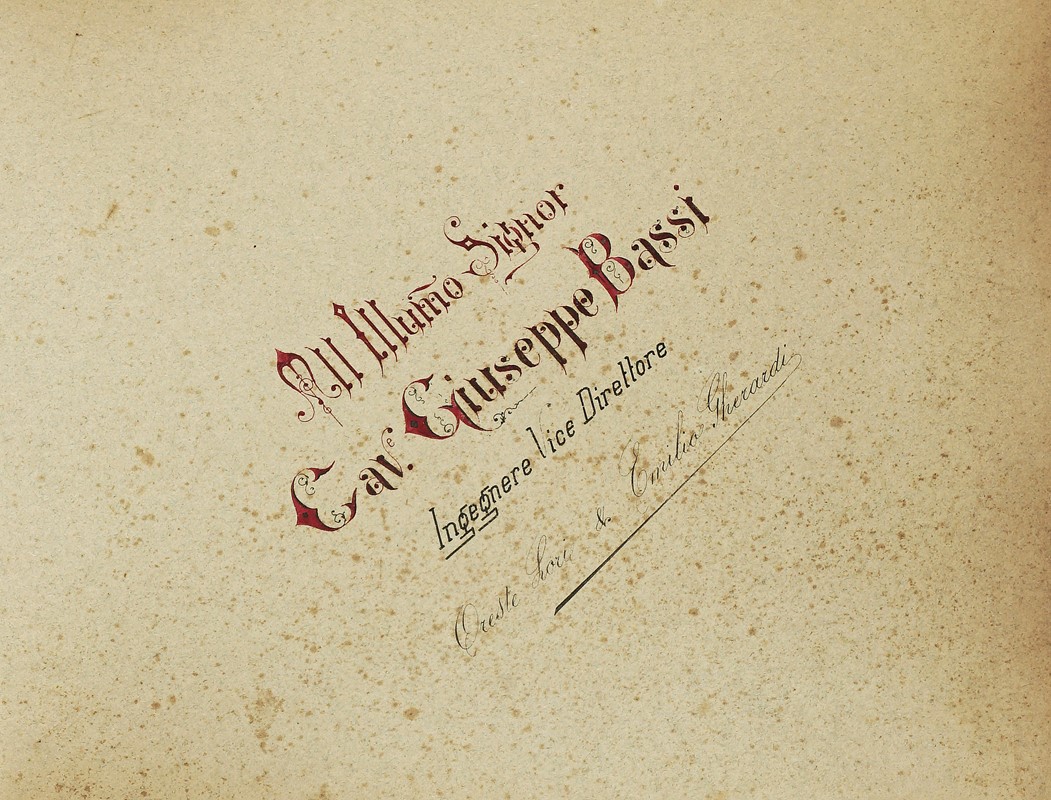 All Illum̃o Signor
Cav.e Giuseppe Bassi
Ingegnere Vice Direttore
Oreste Lori & Emilio Gherardi